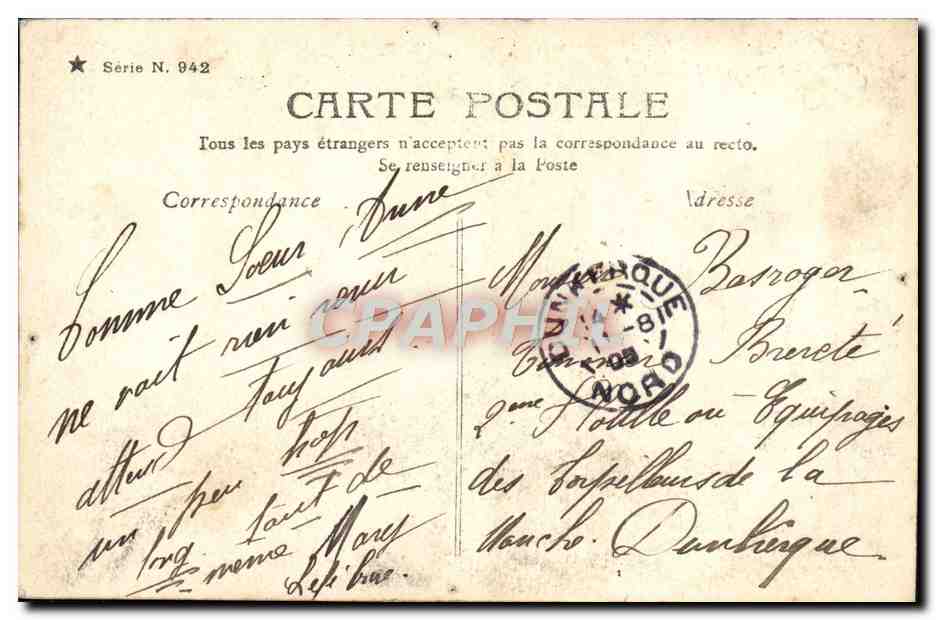 ★ Série N. 942
CARTE POSTALE
Tous les pays étrangers n'acceptent pas la correspondance au recto.
Se renseigner à la Poste
Correspondance
Adresse
Comme Soeur Anne
ne voit rien venir
attend toujours
un peu trop
long tout de
même Mary
Lefebvre.
Monsieur Basroger
Breveté
2eme Flotille ou Equipages
des torpilleurs de la
Manche. Dunkerque
DUNKERQUE
NORD
CPAPHIL